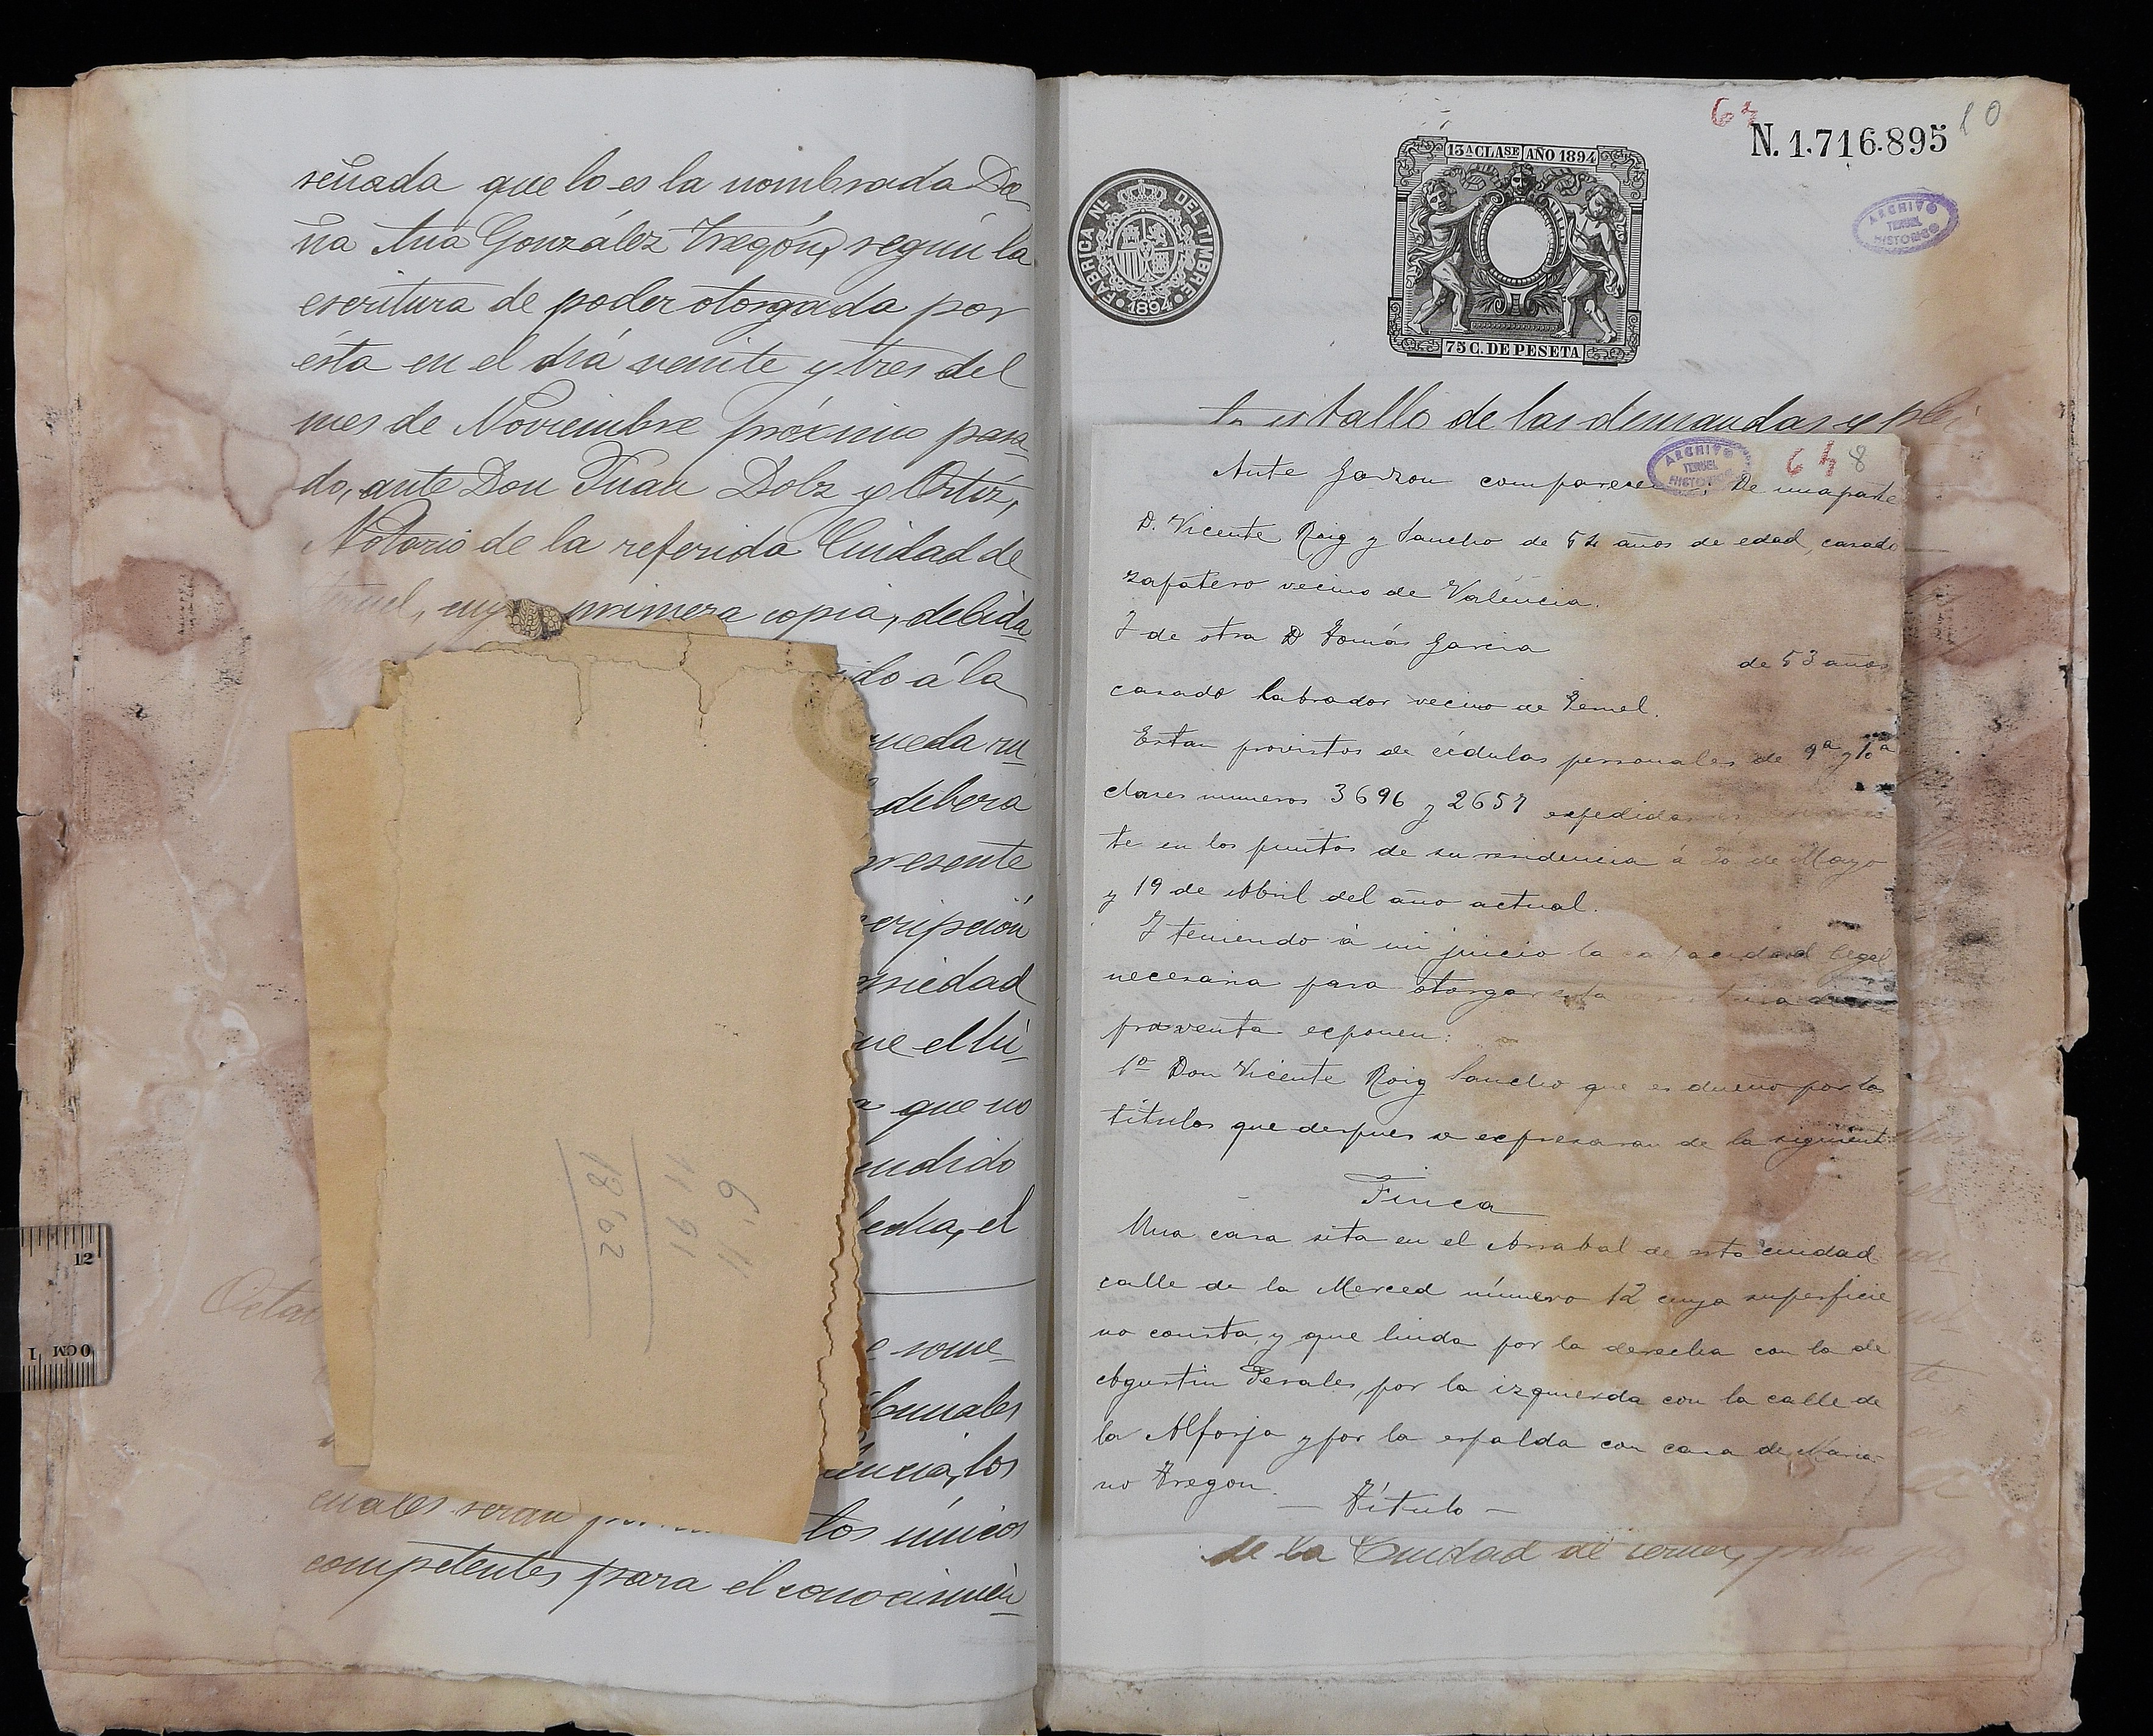 señada que lo es la nombrada Do-
ña Ana González Fregón, según la
escritura de poder otorgada por
ésta en el día veinte y tres del
mes de Noviembre próximo pasa-
do, ante Don Juan Dolz y Ortíz,
Notario de la referida Ciudad de
primera copia, debida
á la
debera
presente
que no
el
some-
los
cuales seran los únicos
competentes para el conocimien-
12
1 0 CM
6'11
11 91
18'02
64
10
N. 1.716.895
13A CLASE AÑO 1894
75 C. DE PESETA
FABRICA NL. DEL TIMBRE
1894
ARCHIVO
TERUEL
HISTORICO
de las demandas y plei
ARCHIVO
TERUEL
HISTORICO
64 8
Ante Garzon comparecen: De una parte
D. Vicente Roig y Sancho de 52 años de edad, casado
zapatero vecino de Valencia.
Y de otra D Tomás Garcia
de 53 años
casado labrador vecino de Teruel.
Estan provistos de cédulas personales de 9ª y 10ª
clases numeros 3696 y 2657 expedidas
te en los puntos de su residencia á 20 de Mayo
y 19 de Abril del año actual.
Y teniendo á mi juicio la capacidad legal
necesaria para otorgar esta escritura de
praventa exponen:
1º Don Vicente Roig Sancho que es dueño por los
títulos que despues se expresaran de la siguiente
Finca
Una casa sita en el Arrabal de esta ciudad
calle de la Merced número 12 cuya superficie
no consta, y que linda por la derecha con la de
Agustin Perales, por la izquierda con la calle de
la Alforja y por la espalda con casa de Maria-
no Fregon.
— Título —
de la Ciudad de Teruel, para